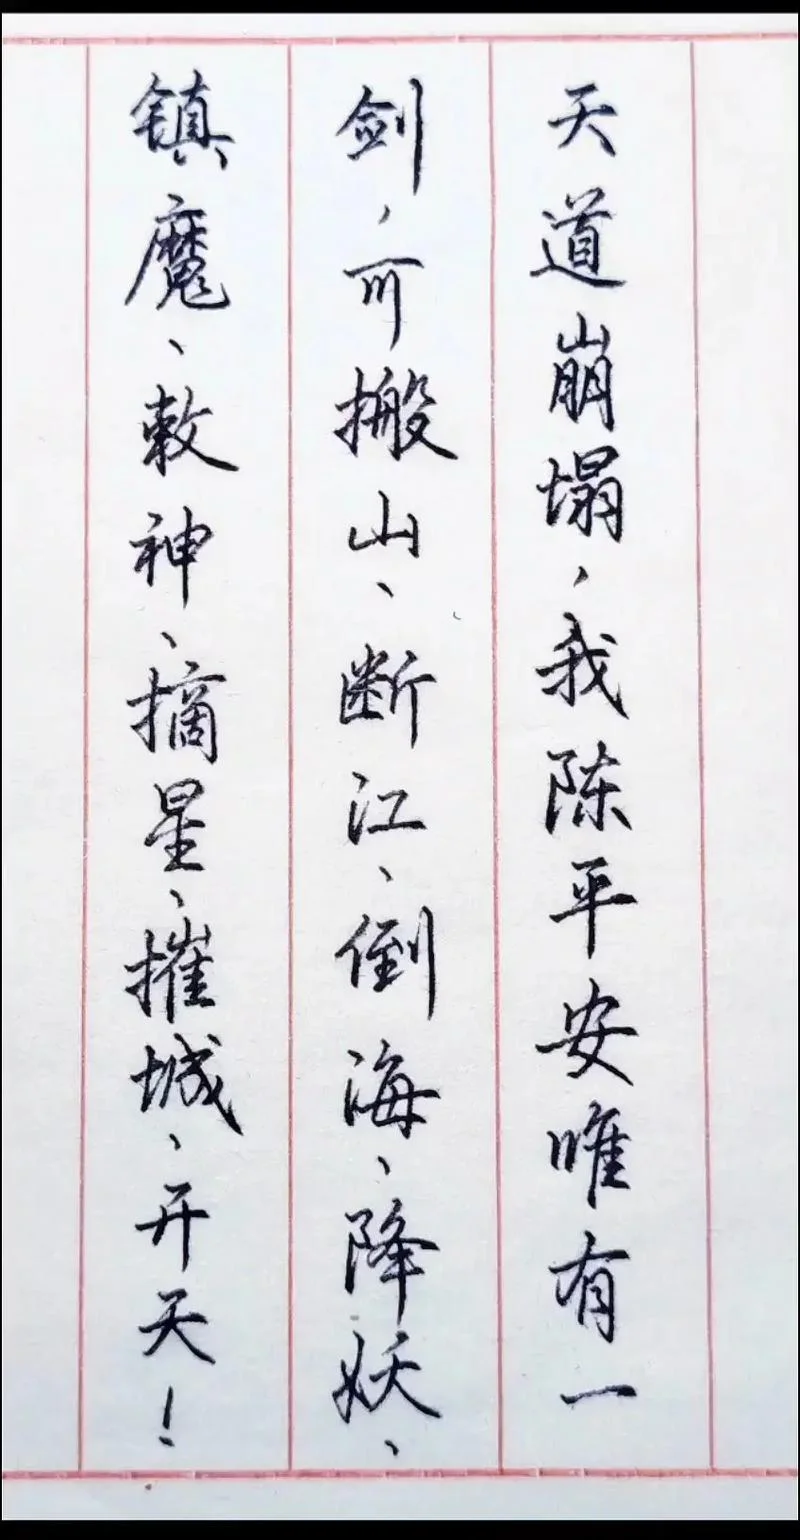 天道崩塌，我陈平安唯有一
剑，可搬山、断江、倒海、降妖、
镇魔、敕神、摘星、摧城、开天！